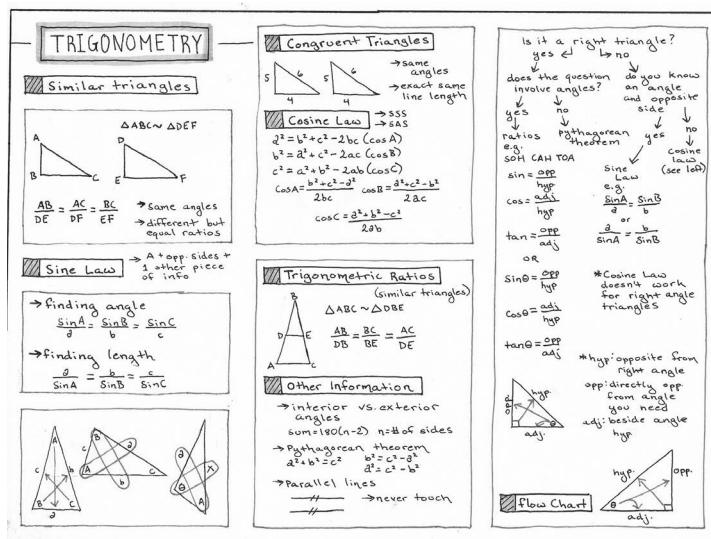 TRIGONOMETRY
Similar triangles
△ABC ~ △DEF
A
D
B
C
E
F
AB/DE = AC/DF = BC/EF
→ same angles
→ different but equal ratios
Sine Law
→ A + opp. sides + 1 other piece of info
→ finding angle
SinA/a = SinB/b = SinC/c
→ finding length
a/SinA = b/SinB = c/SinC
A
c
b
B
C
a
B
c
a
A
b
C
a
x
θ
A
Congruent Triangles
5
6
4
5
6
4
→ same angles
→ exact same line length
Cosine Law
→ SSS
→ SAS
a² = b² + c² - 2bc (cosA)
b² = a² + c² - 2ac (cosB)
c² = a² + b² - 2ab (cosC)
CosA = b² + c² - a²/2bc
cosB = a² + c² - b²/2ac
cosC = a² + b² - c²/2ab
Trigonometric Ratios
(similar triangles)
B
D
E
A
C
△ABC ~ △DBE
AB/DB = BC/BE = AC/DE
Other Information
→ interior vs. exterior angles
sum = 180(n-2) n = # of sides
→ Pythagorean theorem
a² + b² = c²
b² = c² - a²
a² = c² - b²
→ Parallel lines
→ never touch
Is it a right triangle?
yes
no
does the question involve angles?
do you know an angle and opposite side
yes
no
yes
no
ratios e.g.
pythagorean theorem
cosine law (see left)
SOH CAH TOA
Sine Law e.g.
sin = opp/hyp
cos = adj/hyp
tan = opp/adj
SinA/a = SinB/b
or
a/SinA = b/SinB
OR
Sinθ = opp/hyp
Cosθ = adj/hyp
tanθ = opp/adj
*Cosine Law doesn't work for right angle triangles
*hyp: opposite from right angle
opp: directly opp. from angle you need
adj: beside angle hyp
opp
hyp.
θ
adj.
flow Chart
hyp.
opp.
θ
adj.